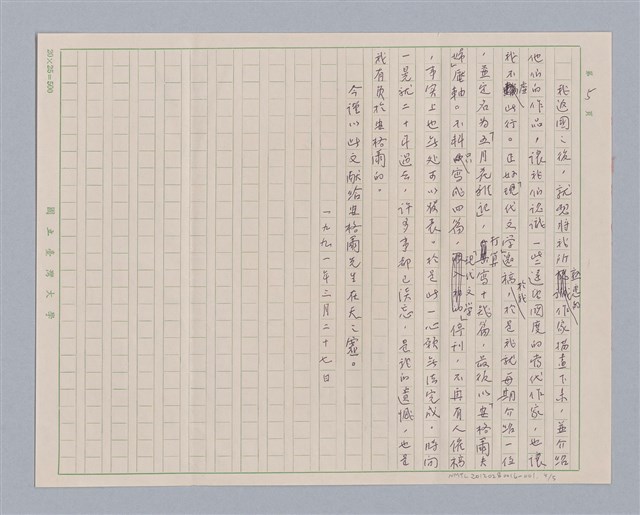 第 5 頁
我返國之後，就想將我所熟悉的作家描畫下來，並介紹
他们的作品，讓我们認識一些這些國度的當代作家，也讓
我不虛此行。正好「現代文學」邀稿於我，於是我就每期介紹一位
，並定名為「五月花雜記」，打算寫十幾篇，最後以「安格爾夫
婦」壓軸。不料只寫成四篇，「現代文學」停刊，不再有人催稿
，事實上也無處可以發表。於是此一心願無法完成，時間
一晃就二十年過去，許多事都已淡忘，是我的遺憾，也是
我有負於安格爾的。
今謹以此文獻給安格爾先生在天之靈。
一九九一年三月二十七日
國立臺灣大學
20×25=500